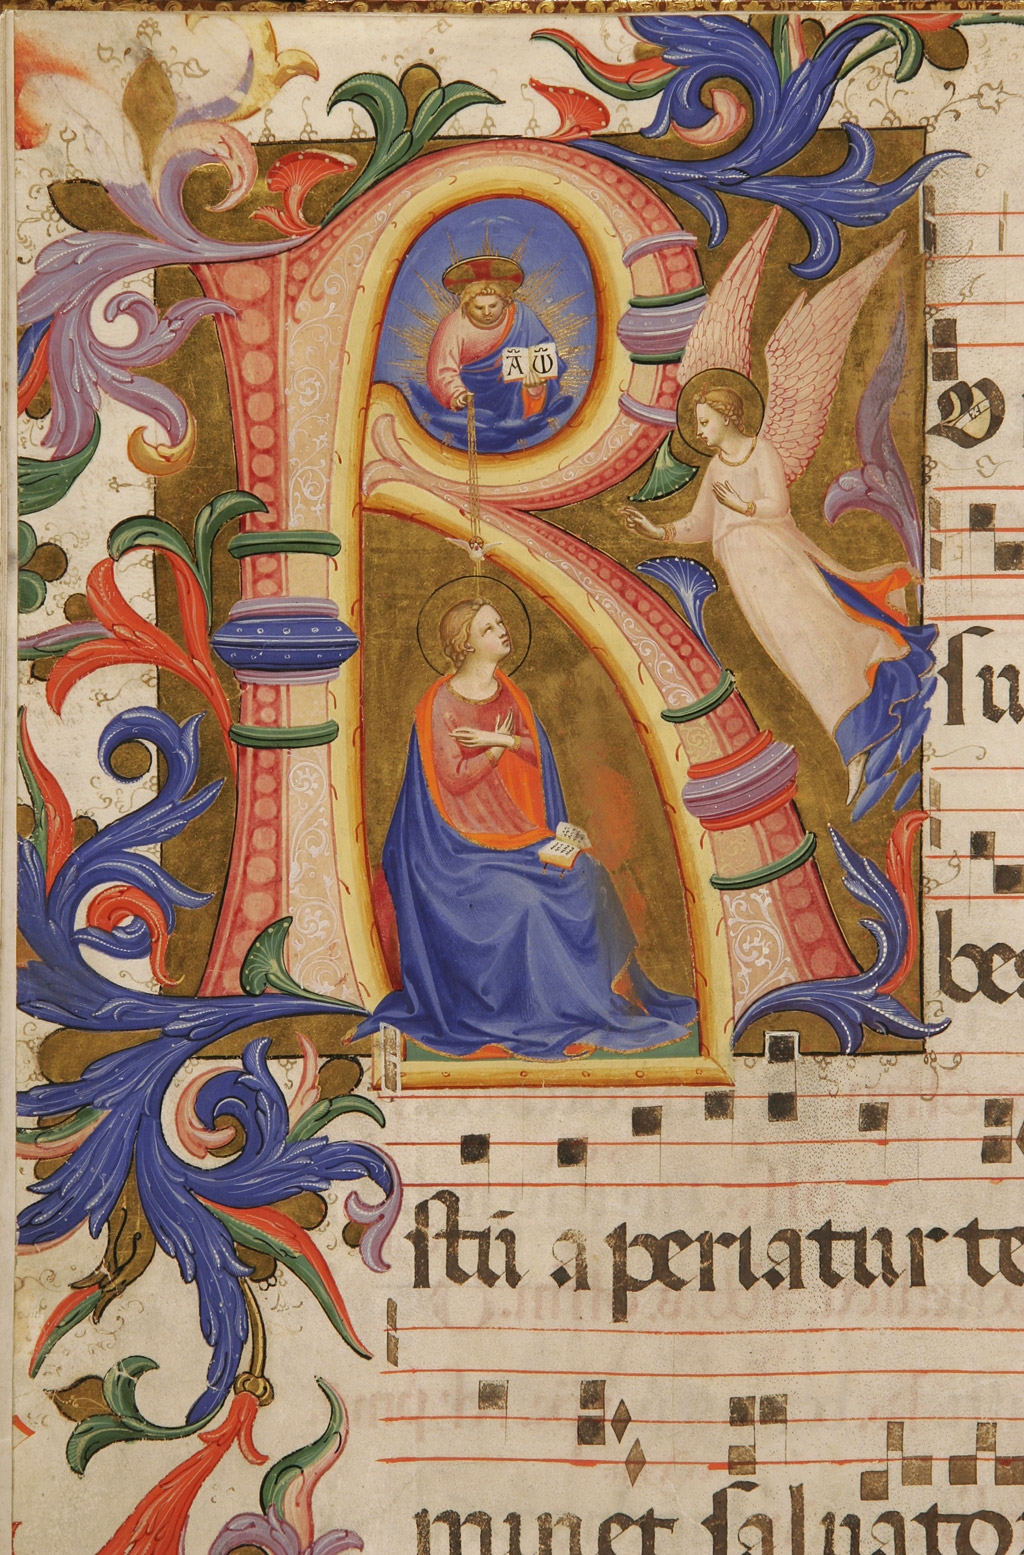 R
A ω
su
bes
stū aperiatur te
minet salvator